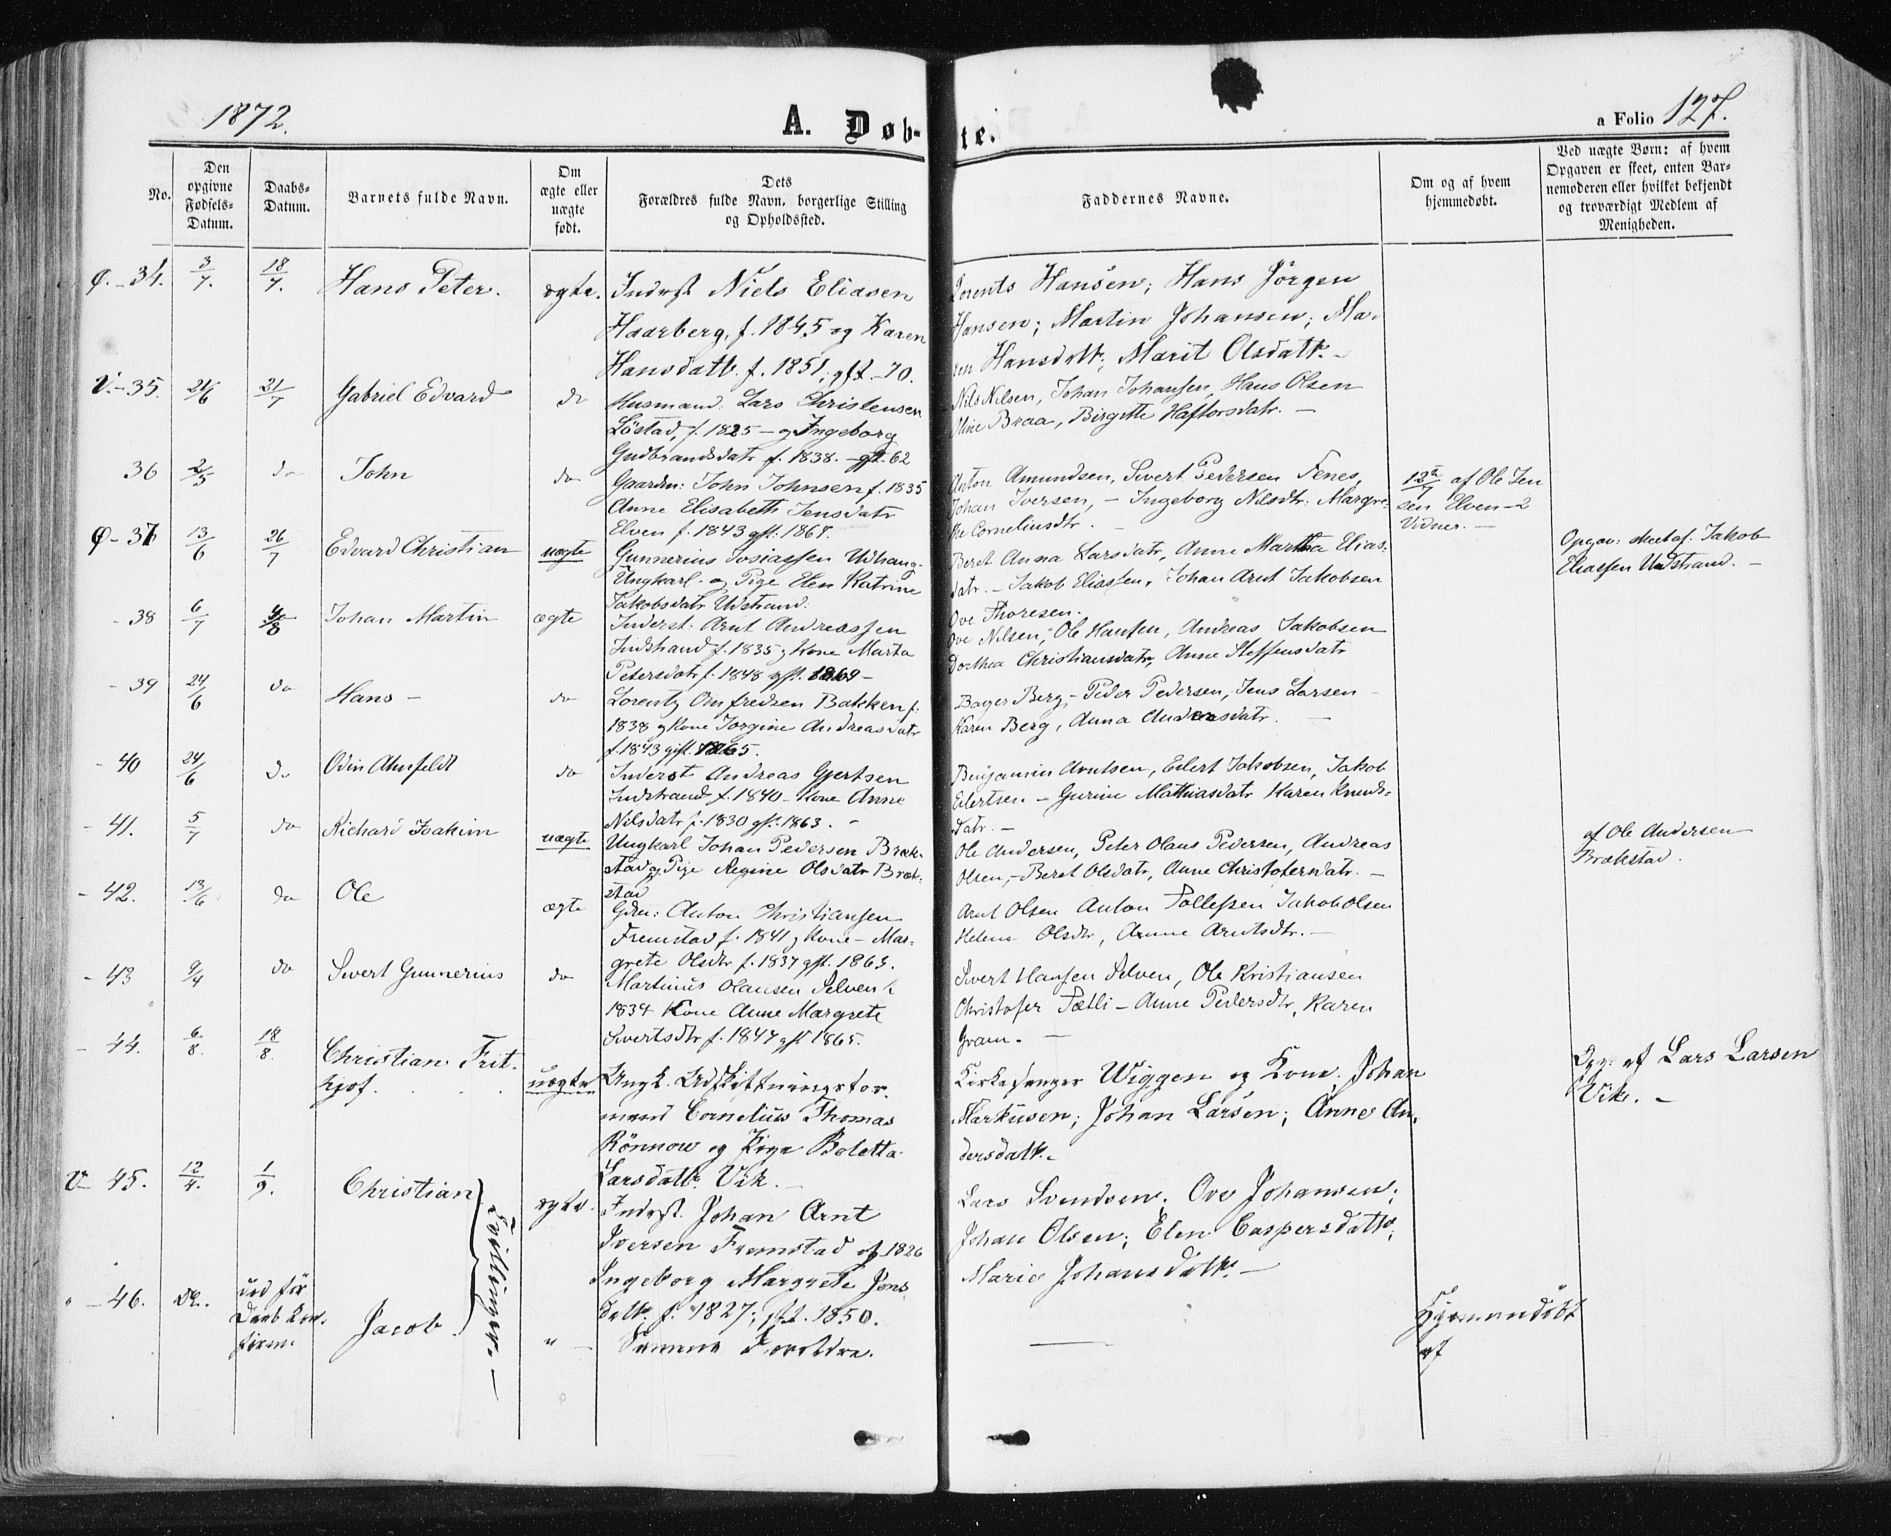 1872. A. Døb- te. a Folio 127.
No.
Den opgivne Fødsels-Datum.
Daabs-Datum.
Barnets fulde Navn.
Om ægte eller uægte født.
Dets Forældres fulde Navn, borgerlige Stilling og Opholdssted.
Faddernes Navne.
Om og af hvem hjemmedøbt.
Ved uægte Børn: af hvem Opgaven er skeet, enten Barnemoderen eller hvilket bekjendt og troværdigt Medlem af Menigheden.
Ø. - 34. 3/7. 18/7. Hans Peter. ægte. Inderst Niels Eliasen
Haarberg, f. 1845 og Karen
Hansdatt. f. 1851, gft. - 70.
Lorents Hansen; Hans Jørgen
Hansen; Martin Johansen; Ma-
ren Hansdatt; Marit Olsdatt. -
V. - 35. 21/7 Gabriel Edvard do Husmand: Lars Christensen
Løstad, f. 1825 - og Ingeborg
Gudbrandsdatr f. 1838. - gft. 62
Nils Nilsen, Johan Johansen, Hans Olsen
Oline Braa, Birgitte Haftorsdatr. -
36 2/5 do John do Gaardm: John Johnsen f. 1835
Anne Elisabeth Jensdatr
Elven f. 1843 gft. 1867.
Anton Amundsen, Sivert Pedersen Fenes,
Johan Iversen, - Ingeborg Nilsdtr. Margre-
the Corneliusdtr.
12/7 af Ole Jen
sen Elven - 2
Vidner. -
Ø - 37 13/6 26/7 Edvard Christian uægte Gunnerius Tosiassen Udhaug
Ungkarl - og Pige Elen Katrine
Jakobsdatr Udstrand:
Beret Anna Larsdatr, Anne Martha Elias-
datr. - Jakob Eliassen, Johan Arnt Jakobsen
Ove Thoresen.
Opgav: skeet af Jakob
Eliassen Udstrand. -
- 38 6/7 4/8 Johan Martin ægte Inderst: Arnt Andreassen
Indstrand f. 1835 og Kone Marta
Petersdatr f. 1848 gft. 1869 -
Ove Nilsen, Ole Hansen, Andreas Jakobsen
Dorthea Christiansdatr, Anne Steffensdatr
- 39 24/6 do Hans - do Lorentz Omfredsen Bakken f:
1838 og Kone Jorgine Andreasdatr
f. 1843 gift. 1865.
Bager Berg, - Peder Pedersen, Jens Larsen -
Karen Berg, Anna Andreasdatr. -
- 40 24/6 do Odin Ahnfeldt do Inderst Andreas Gjertsen
Indstrand f. 1840 - Kone Anne
Nilsdatr f. 1830 gft. 1863. -
Benjamin Arntsen, Eilert Jakobsen, Jakob
Eilertsen - Gurine Mathiasdatr Karen Knuds-
datr. -
- 41. 5/7 do Richard Joakim uægte Ungkarl Johan Pedersen Bræk-
stad og Pige Regine Olsdatr Bræk-
stad
Ole Andersen, Peter Olaus Pedersen, Andreas
Olsen, - Beret Olsdatr, Anne Christofersdatr. -
af Ole Andersen
Brækstad.
- 42. 13/6 do Ole ægte Gdm: Anton Christiansen
Fremstad f. 1841 og Kone - Mar-
grete Olsdtr f. 1837 gft. 1863.
Arnt Olsen Anton Tollefsen Jakob Olsen
Helene Olsdtr, Anne Arntsdtr. -
- 43 9/4 do Sivert Gunnerius do Martinus Olausen Selven f.
1834 Kone Anne Margrete
Sivertsdtr f. 1847 gft 1865.
Sivert Hansen Selven, Ole Kristiansen
Christofer Sætli - Anne Pedersdtr, Karen
Gram. -
- 44. 6/8. 18/8. Christian Frit-
hjof. uægte Ungk. Udskiftningsfor-
mand Cornelius Thomas
Rönnow og Pige Boletta
Larsdatt. Vik. -
Kirkesanger Wiggen og Kone; Johan
Markusen; Johan Larsen; Anne An-
dersdatt. -
Opg: af Lars Larsen
Vik. -
V - 45. 12/4. 1/9. Christian ægte. Inderst. Johan Arnt
Iversen Fremstad f. 1826
Ingeborg Margrete Jens
datt. f. 1827; gft. 1850.
Lars Svendsen, Ove Johansen;
Johan Olsen; Elen Caspersdatt;
Marie Johansdatt. -
Tvillinger. -
" - 46. Do. død før
Daab kon-
firm. Jacob " - Samme Forældre.
Hjemmedøbt
af